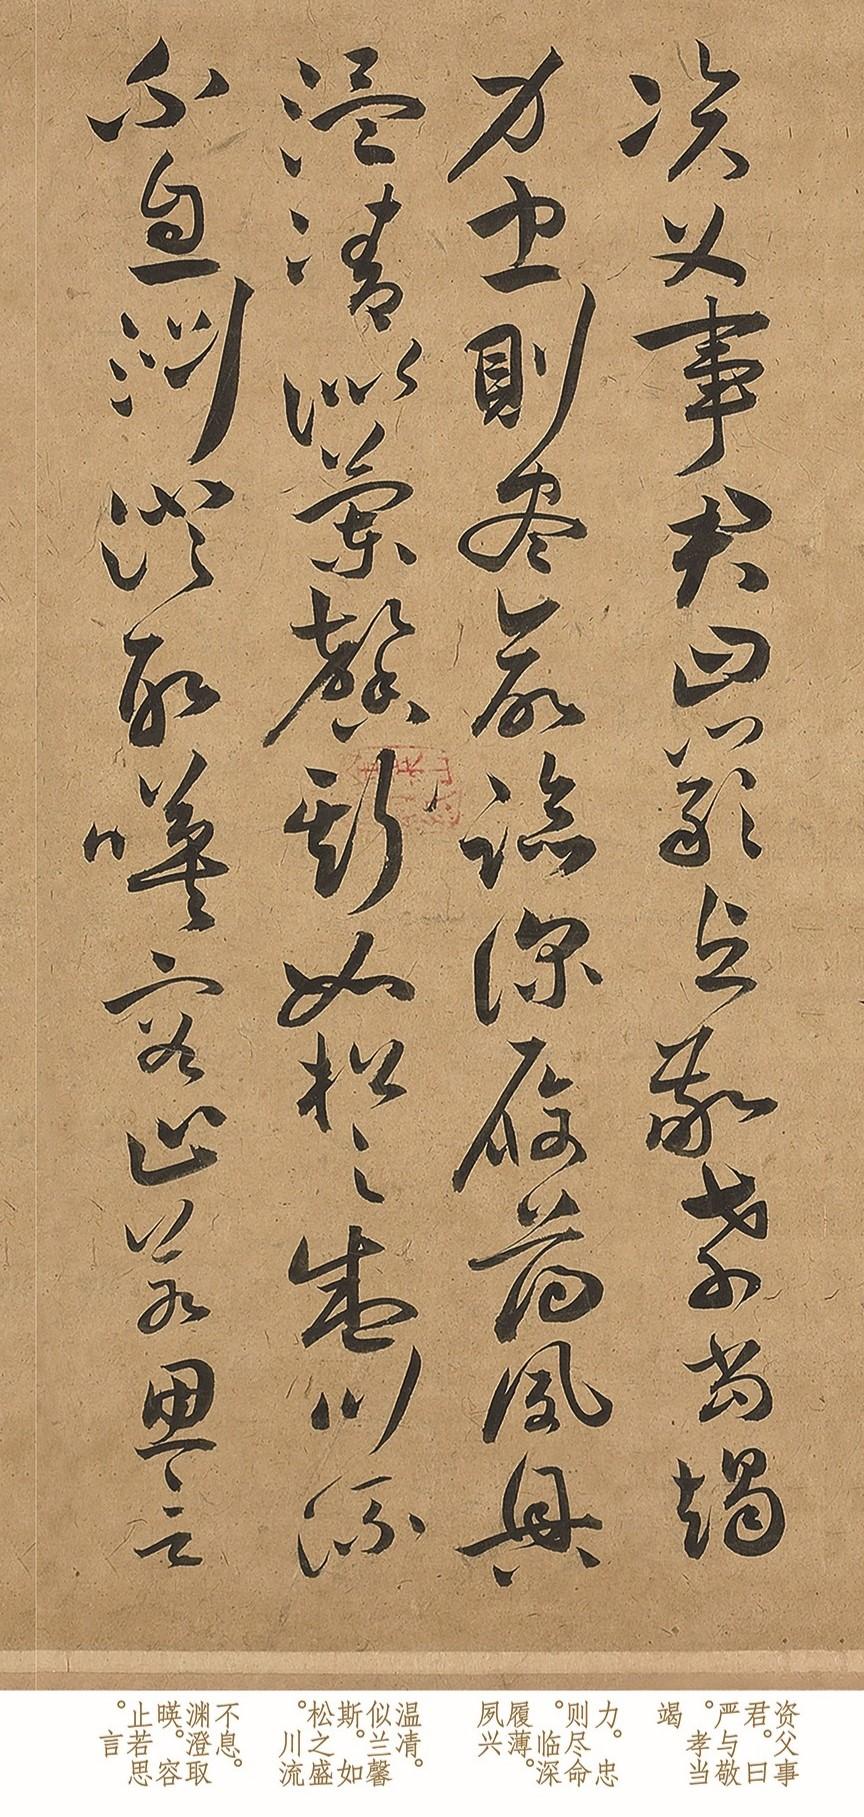 資父事君曰嚴與敬孝當竭
力忠則盡命臨深履薄夙興
温凊似蘭馨斯如松之盛川流
不息淵澄取暎容止若思言
资父事
君。曰
严与敬
。孝当
竭
力。忠
则尽命
。临深
履薄。
夙兴
温凊。
似兰馨
斯。如
松之盛
。川流
不息。
渊澄取
暎。容
止若思
。言